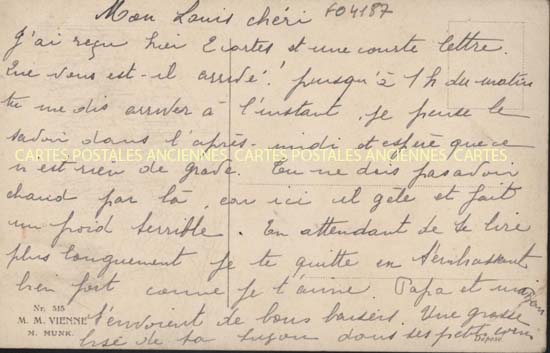 Mon Louis chéri
F04187
J'ai reçu hier 2 cartes et une courte lettre.
Que vous est-il arrivé? puisqu'à 1h du matin
tu me dis arriver à l'instant, je pense le
savoir dans l'après-midi et espère que ce
CARTES POSTALES ANCIENNES CARTES POSTALES ANCIENNES CARTES POSTALES
n'est rien de grave. Tu ne dois pas avoir
chaud par là, car ici il gèle et fait
un froid terrible. En attendant de te lire
plus longuement je te quitte en t'embrassant
bien fort comme je t'aime. Papa et maman
t'envoient de bons baisers. Une grosse
bise de ta dans ses petits
Nr. 515
M. M. VIENNE
M. MUNK.
Déposé